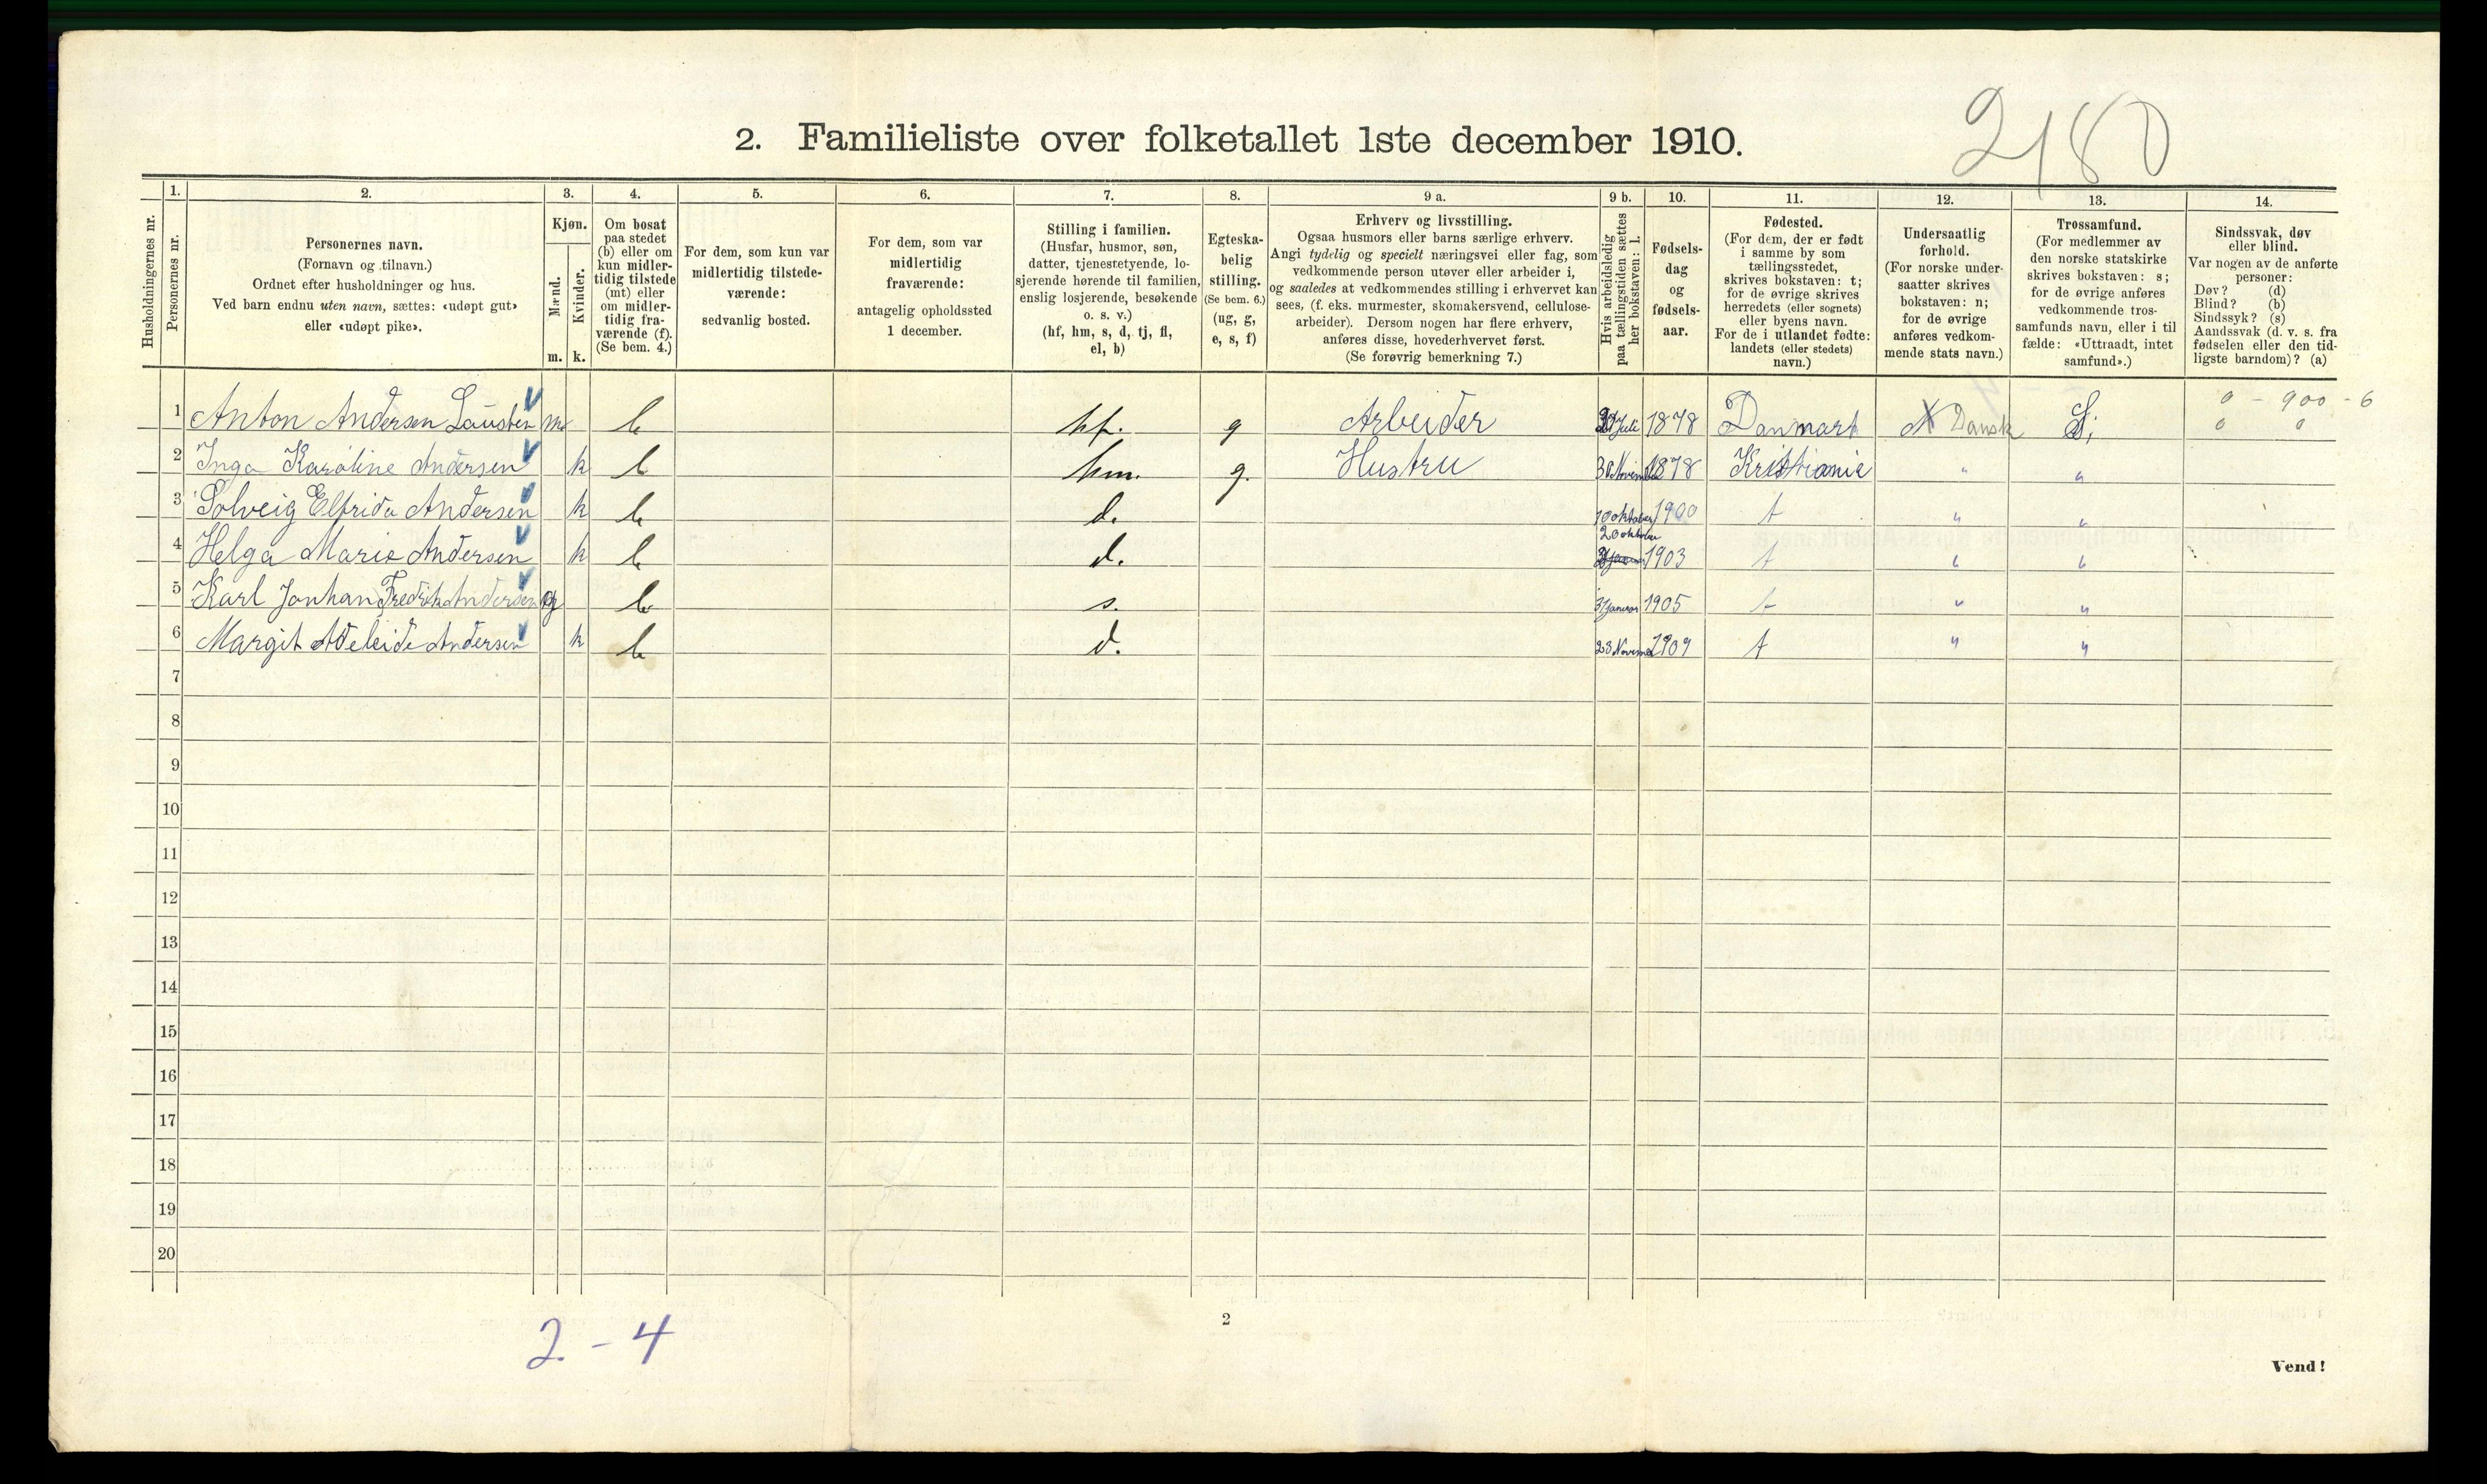 2180
2. Familieliste over folketallet 1ste december 1910.
Husholdningernes nr.
1. Personernes nr.
2. Personernes navn.
(Fornavn og tilnavn.)
Ordnet efter husholdninger og hus.
Ved barn endnu uten navn, sættes: «udøpt gut»
eller «udøpt pike».
3. Kjøn.
Mænd. m.
Kvinder. k.
4. Om bosat
paa stedet
(b) eller om
kun midler-
tidig tilstede
(mt) eller
om midler-
tidig fra-
værende (f).
(Se bem. 4.)
5. For dem, som kun var
midlertidig tilstede-
værende:
sedvanlig bosted.
6. For dem, som var
midlertidig
fraværende:
antagelig opholdssted
1 december.
7. Stilling i familien.
(Husfar, husmor, søn,
datter, tjenestetyende, lo-
sjerende hørende til familien,
enslig losjerende, besøkende
o. s. v.)
(hf, hm, s, d, tj, fl,
el, b)
8. Egteska-
belig
stilling.
(Se bem. 6.)
(ug, g,
e, s, f)
9 a. Erhverv og livsstilling.
Ogsaa husmors eller barns særlige erhverv.
Angi tydelig og specielt næringsvei eller fag, som
vedkommende person utøver eller arbeider i,
og saaledes at vedkommendes stilling i erhvervet kan
sees, (f. eks. murmester, skomakersvend, cellulose-
arbeider). Dersom nogen har flere erhverv,
anføres disse, hovederhvervet først.
(Se forøvrig bemerkning 7.)
9 b. Hvis arbeidsledig
paa tællingstiden sættes
her bokstaven: l.
10. Fødsels-
dag
og
fødsels-
aar.
11. Fødested.
(For dem, der er født
i samme by som
tællingsstedet,
skrives bokstaven: t;
for de øvrige skrives
herredets (eller sognets)
eller byens navn.
For de i utlandet fødte:
landets (eller stedets)
navn.)
12. Undersaatlig
forhold.
(For norske under-
saatter skrives
bokstaven: n;
for de øvrige
anføres vedkom-
mende stats navn.)
13. Trossamfund.
(For medlemmer av
den norske statskirke
skrives bokstaven: s;
for de øvrige anføres
vedkommende tros-
samfunds navn, eller i til
fælde: «Uttraadt, intet
samfund».)
14. Sindssvak, døv
eller blind.
Var nogen av de anførte
personer:
Døv? (d)
Blind? (b)
Sindssyk? (s)
Aandssvak (d. v. s. fra
fødselen eller den tid-
ligste barndom)? (a)
0 - 900 - 6
1 Anton Andersen Lausten m b hf. g Arbeider Juli 1878 Danmark N Dansk S; 0 0
2 Inga Karoline Andersen k b hm. g. Hustru 30 Novem 1878 Kristiania " "
3 Solveig Elfrida Andersen k b d. 10 oktober 1900 t " "
20 oktober
4 Helga Marie Andersen k b d. 1903 t " "
5 Karl Jonhan Fredrik Andersen b s. 31 Januar 1905 t " "
6 Margit Adeleide Andersen k b d. 23 Novem 1909 t " "
7
8
9
10
11
12
13
14
15
16
17
18
19
20
2 - 4
2
Vend!